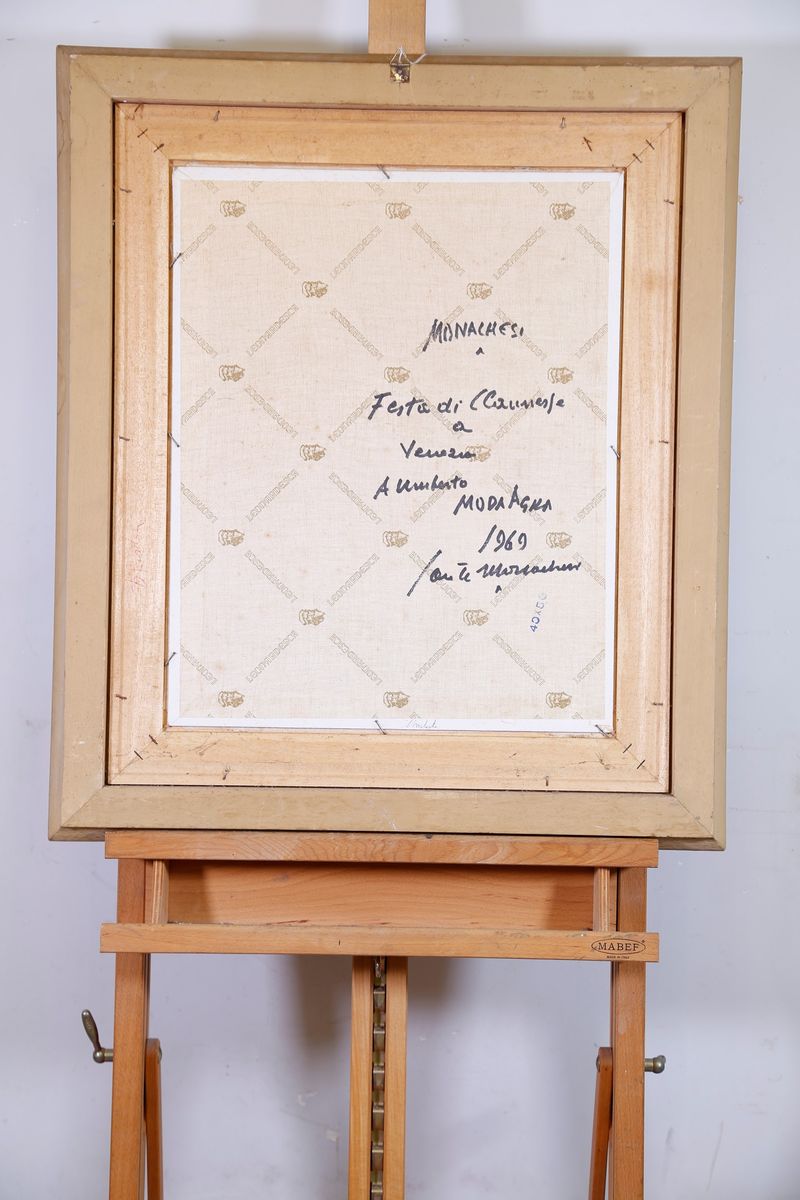 MONACHESI
Festa di
a
Venezia
A Umberto
MODAGNA
1969
Sante Monachesi
40x50
MABEF
MADE IN ITALY